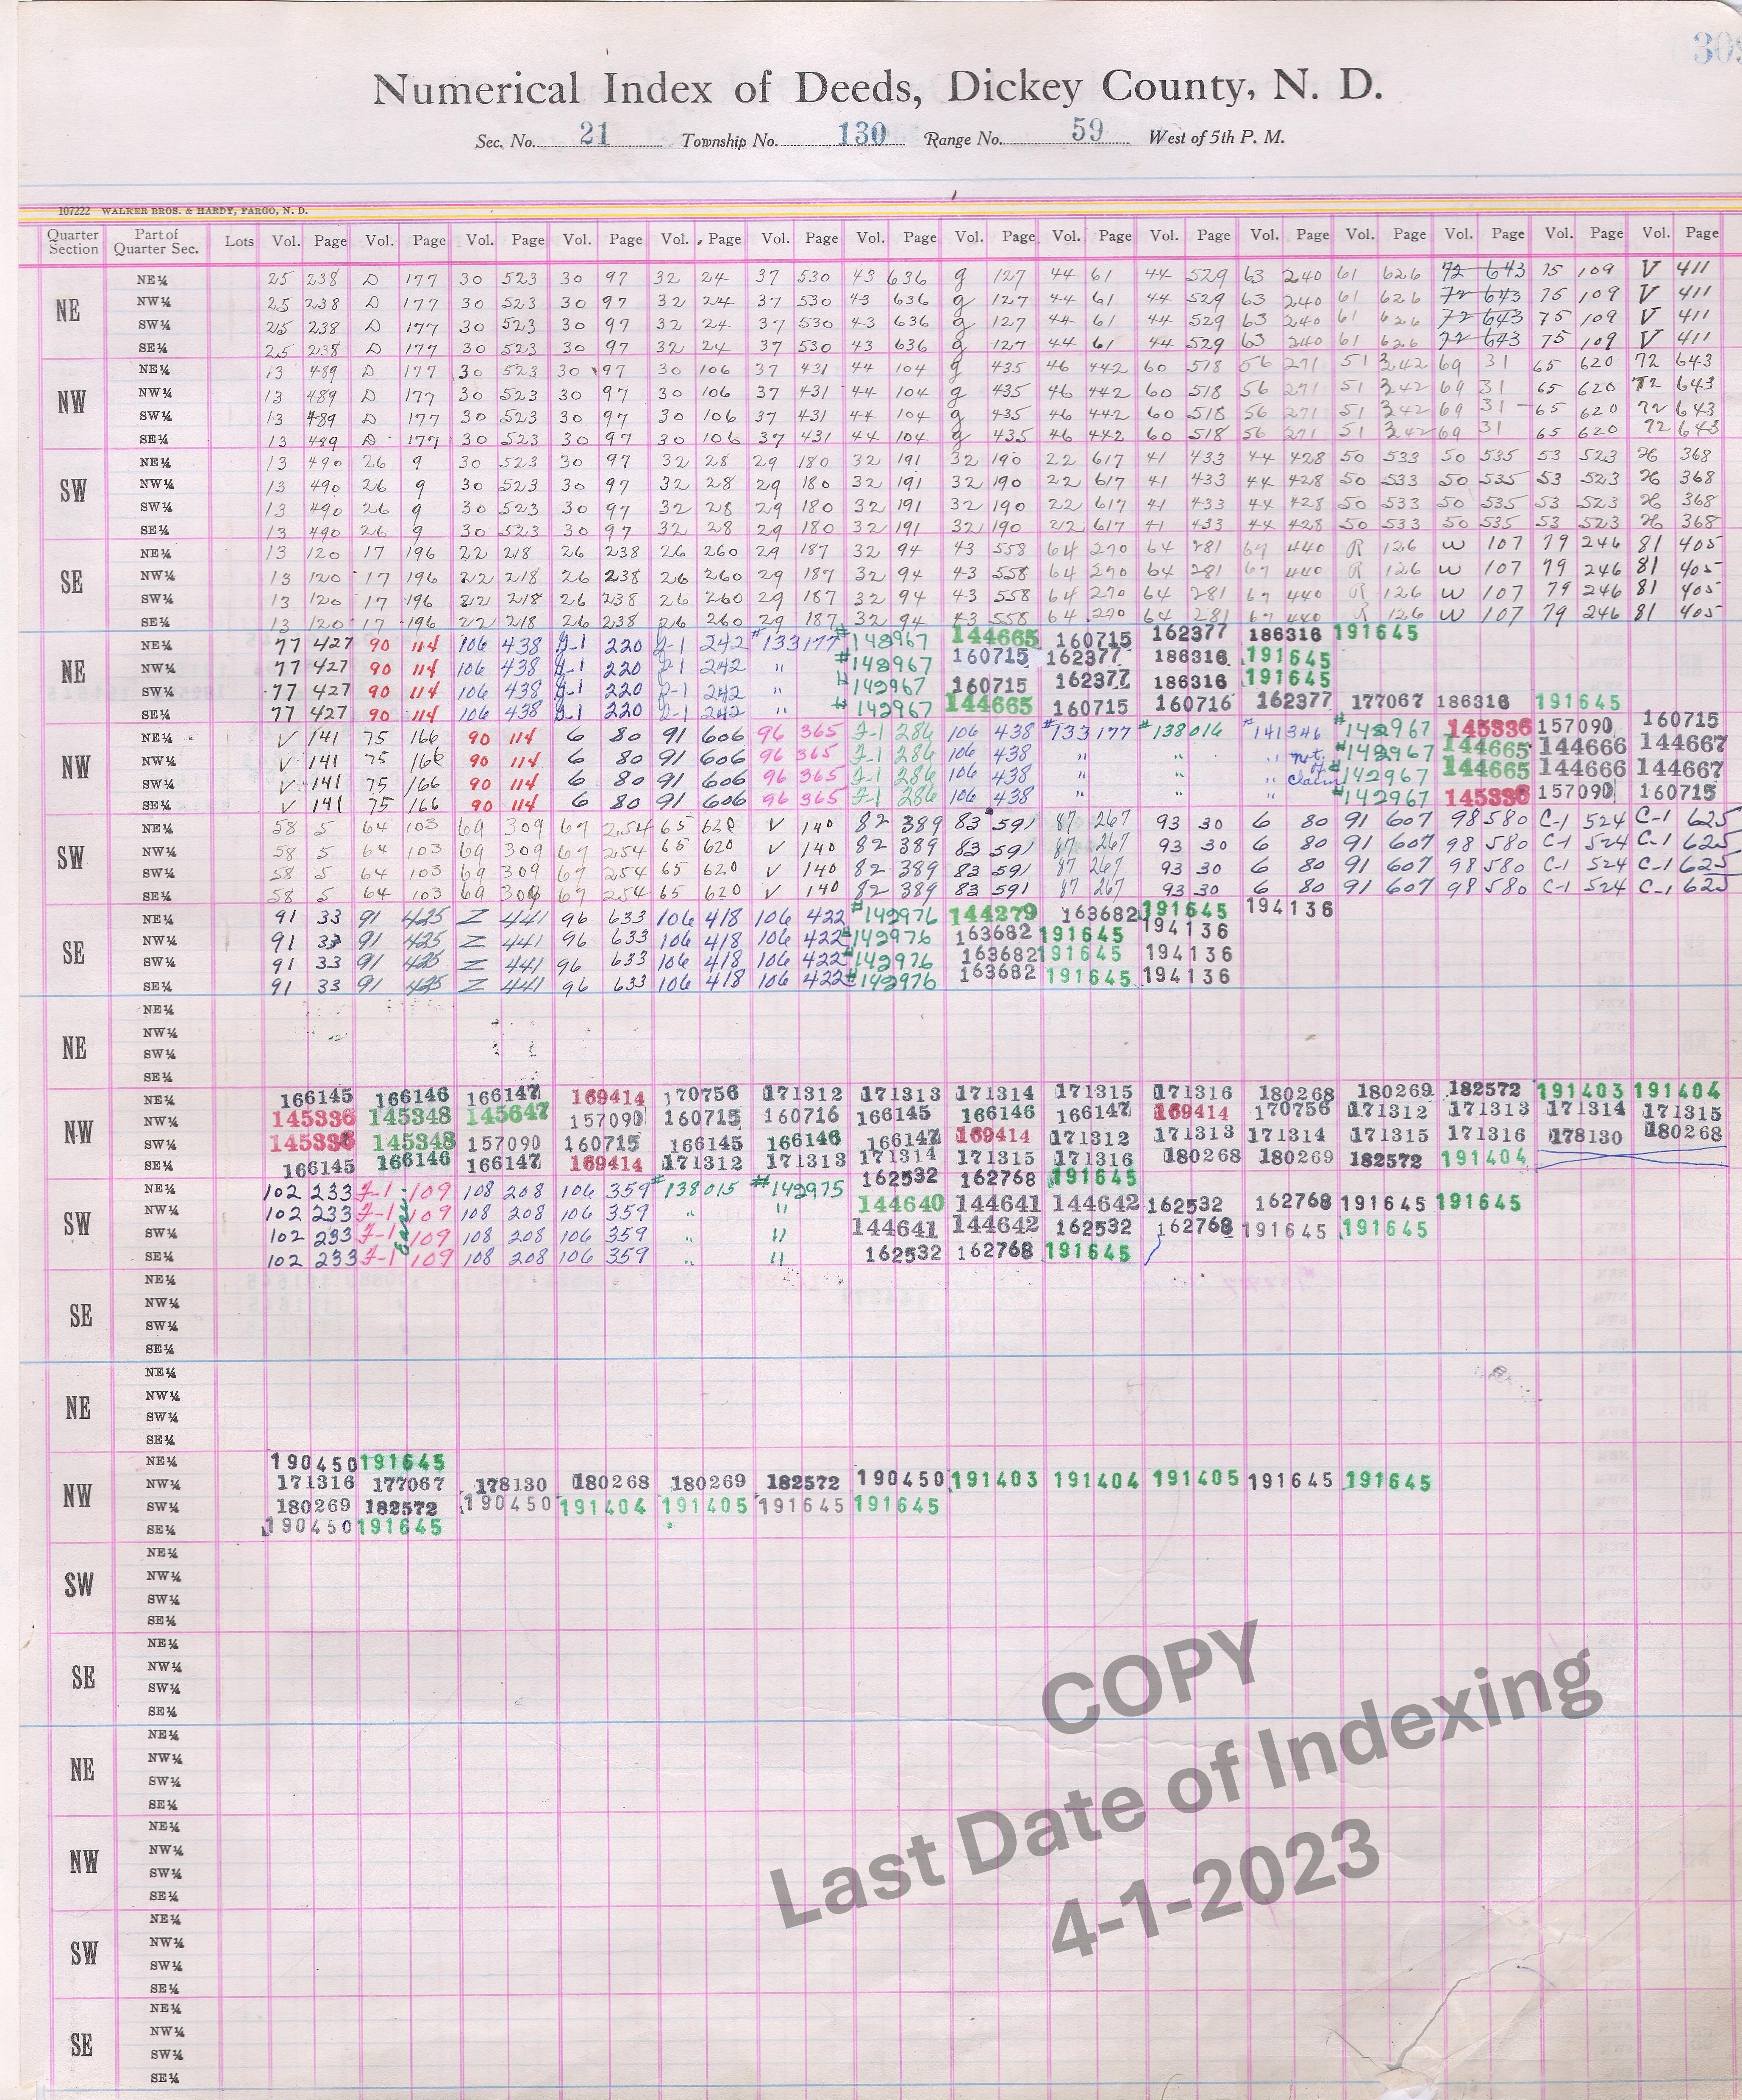 Numerical Index of Deeds, Dickey County, N. D.
Sec. No. 21 Township No. 130 Range No. 59 West of 5th P. M.
107222 WALKER BROS. & HARDY, FARGO, N. D.
Quarter Section Part of Quarter Sec. Lots Vol. Page Vol. Page Vol. Page Vol. Page Vol. Page Vol. Page Vol. Page Vol. Page Vol. Page Vol. Page Vol. Page Vol. Page Vol. Page Vol. Page Vol. Page
NE
NE¼ 25 238 D 177 30 523 30 97 32 24 37 530 43 636 g 127 44 61 44 529 63 240 61 626 72 643 75 109 V 411
NW¼ 25 238 D 177 30 523 30 97 32 24 37 530 43 636 g 127 44 61 44 529 63 240 61 626 72 643 75 109 V 411
SW¼ 25 238 D 177 30 523 30 97 32 24 37 530 43 636 g 127 44 61 44 529 63 240 61 626 72 643 75 109 V 411
SE¼ 25 238 D 177 30 523 30 97 32 24 37 530 43 636 g 127 44 61 44 529 63 240 61 626 72 643 75 109 V 411
NW
NE¼ 13 489 D 177 30 523 30 97 30 106 37 431 44 104 g 435 46 442 60 518 56 271 51 342 69 31 65 620 72 643
NW¼ 13 489 D 177 30 523 30 97 30 106 37 431 44 104 g 435 46 442 60 518 56 271 51 342 69 31 65 620 72 643
SW¼ 13 489 D 177 30 523 30 97 30 106 37 431 44 104 g 435 46 442 60 518 56 271 51 342 69 31 65 620 72 643
SE¼ 13 489 D 177 30 523 30 97 30 106 37 431 44 104 g 435 46 442 60 518 56 271 51 342 69 31 65 620 72 643
SW
NE¼ 13 490 26 9 30 523 30 97 32 28 29 180 32 191 32 190 22 617 41 433 44 428 50 533 50 535 53 523 H 368
NW¼ 13 490 26 9 30 523 30 97 32 28 29 180 32 191 32 190 22 617 41 433 44 428 50 533 50 535 53 523 H 368
SW¼ 13 490 26 9 30 523 30 97 32 28 29 180 32 191 32 190 22 617 41 433 44 428 50 533 50 535 53 523 H 368
SE¼ 13 490 26 9 30 523 30 97 32 28 29 180 32 191 32 190 22 617 41 433 44 428 50 533 50 535 53 523 H 368
SE
NE¼ 13 120 17 196 22 218 26 238 26 260 29 187 32 94 43 558 64 270 64 281 67 440 R 126 W 107 79 246 81 405
NW¼ 13 120 17 196 22 218 26 238 26 260 29 187 32 94 43 558 64 270 64 281 67 440 R 126 W 107 79 246 81 405
SW¼ 13 120 17 196 22 218 26 238 26 260 29 187 32 94 43 558 64 270 64 281 67 440 R 126 W 107 79 246 81 405
SE¼ 13 120 17 196 22 218 26 238 26 260 29 187 32 94 43 558 64 270 64 281 67 440 R 126 W 107 79 246 81 405
NE
NE¼ 77 427 90 114 106 438 220 242 #133177 #142967 144665 160715 162377 186316 191645
NW¼ 77 427 90 114 106 438 220 242 " #142967 160715 162377 186316 191645
SW¼ 77 427 90 114 106 438 220 242 " #142967 160715 162377 186316 191645
SE¼ 77 427 90 114 106 438 220 242 " #142967 144665 160715 160716 162377 177067 186316 191645
NW
NE¼ V 141 75 166 90 114 6 80 91 606 96 365 J-1 286 106 438 #133177 #138016 #141346 #142967 145336 157090 160715
NW¼ V 141 75 166 90 114 6 80 91 606 96 365 J-1 286 106 438 " " " not #142967 144665 144666 144667
SW¼ V 141 75 166 90 114 6 80 91 606 96 365 J-1 286 106 438 " " " of claim #142967 144665 144666 144667
SE¼ V 141 75 166 90 114 6 80 91 606 96 365 J-1 286 106 438 " " " #142967 145336 157090 160715
SW
NE¼ 58 5 64 103 69 309 67 254 65 620 V 140 82 389 83 591 87 267 93 30 6 80 91 607 98 580 C-1 524 C-1 625
NW¼ 58 5 64 103 69 309 67 254 65 620 V 140 82 389 83 591 87 267 93 30 6 80 91 607 98 580 C-1 524 C-1 625
SW¼ 58 5 64 103 69 309 67 254 65 620 V 140 82 389 83 591 87 267 93 30 6 80 91 607 98 580 C-1 524 C-1 625
SE¼ 58 5 64 103 69 309 67 254 65 620 V 140 82 389 83 591 87 267 93 30 6 80 91 607 98 580 C-1 524 C-1 625
SE
NE¼ 91 33 91 425 Z 441 96 633 106 418 106 422 #142976 144279 163682 191645 194136
NW¼ 91 33 91 425 Z 441 96 633 106 418 106 422 #142976 163682 191645 194136
SW¼ 91 33 91 425 Z 441 96 633 106 418 106 422 #142976 163682 191645 194136
SE¼ 91 33 91 425 Z 441 96 633 106 418 106 422 #142976 163682 191645 194136
NE
NE¼
NW¼
SW¼
SE¼
NW
NE¼ 166145 166146 166147 169414 170756 171312 171313 171314 171315 171316 180268 180269 182572 191403 191404
NW¼ 145336 145348 145647 157090 160715 160716 166145 166146 166147 169414 170756 171312 171313 171314 171315
SW¼ 145336 145348 157090 160715 166145 166146 166147 169414 171312 171313 171314 171315 171316 178130 180268
SE¼ 166145 166146 166147 169414 171312 171313 171314 171315 171316 180268 180269 182572 191404
SW
NE¼ 102 233 J-1 109 108 208 106 359 #138015 #142975 162532 162768 191645
NW¼ 102 233 J-1 109 108 208 106 359 " " 144640 144641 144642 162532 162768 191645 191645
SW¼ 102 233 J-1 109 108 208 106 359 " " 144641 144642 162532 162768 191645 191645
SE¼ 102 233 J-1 109 108 208 106 359 " " 162532 162768 191645
SE
NE¼
NW¼
SW¼
SE¼
NE
NE¼
NW¼
SW¼
SE¼
NW
NE¼ 190450 191645
NW¼ 171316 177067 178130 180268 180269 182572 190450 191403 191404 191405 191645 191645
SW¼ 180269 182572 190450 191404 191405 191645 191645
SE¼ 190450 191645
SW
NE¼
NW¼
SW¼
SE¼
SE
NE¼
NW¼
SW¼
SE¼
NE
NE¼
NW¼
SW¼
SE¼
NW
NE¼
NW¼
SW¼
SE¼
SW
NE¼
NW¼
SW¼
SE¼
SE
NE¼
NW¼
SW¼
SE¼
COPY
Last Date of Indexing
4-1-2023